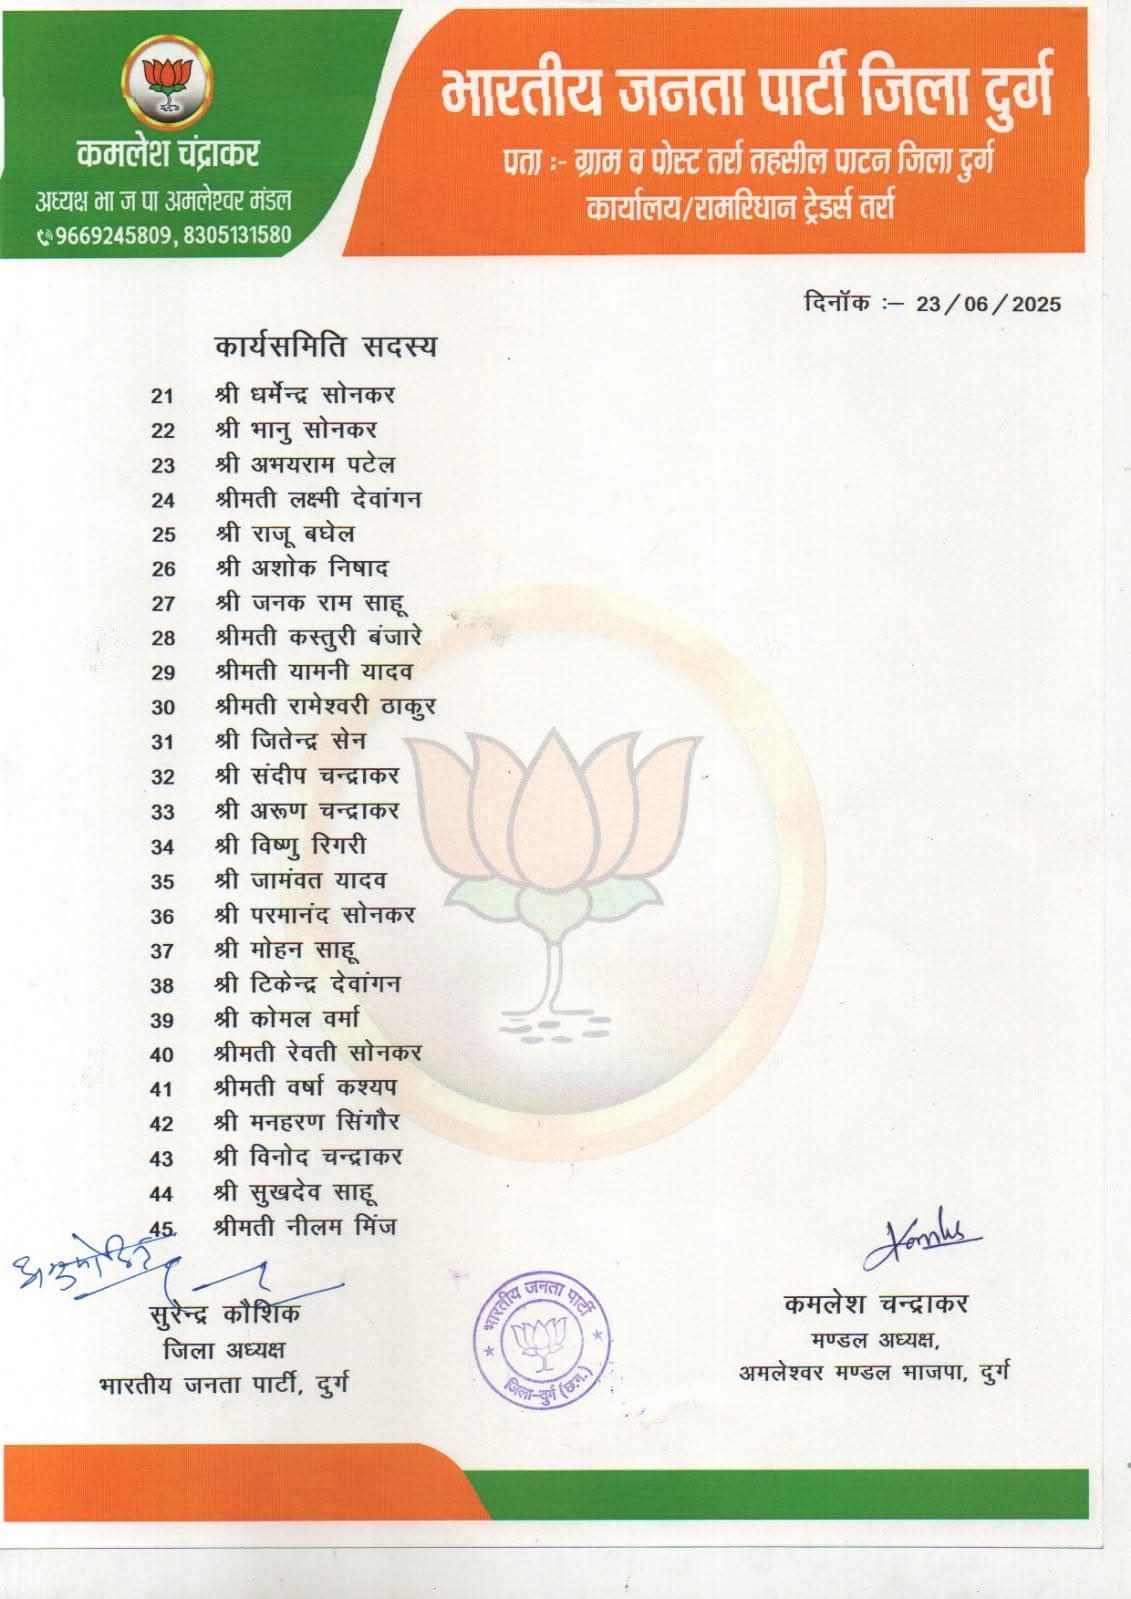 कमलेश चंद्राकर
अध्यक्ष भा ज पा अमलेश्वर मंडल
9669245809, 8305131580
भारतीय जनता पार्टी जिला दुर्ग
पता :- ग्राम व पोस्ट तर्रा तहसील पाटन जिला दुर्ग
कार्यालय/रामरिधान ट्रेडर्स तर्रा
दिनॉक :– 23/06/2025
कार्यसमिति सदस्य
21 श्री धर्मेन्द्र सोनकर
22 श्री भानु सोनकर
23 श्री अभयराम पटेल
24 श्रीमती लक्ष्मी देवांगन
25 श्री राजू बघेल
26 श्री अशोक निषाद
27 श्री जनक राम साहू
28 श्रीमती कस्तुरी बंजारे
29 श्रीमती यामनी यादव
30 श्रीमती रामेश्वरी ठाकुर
31 श्री जितेन्द्र सेन
32 श्री संदीप चन्द्राकर
33 श्री अरूण चन्द्राकर
34 श्री विष्णु रिगरी
35 श्री जामंवत यादव
36 श्री परमानंद सोनकर
37 श्री मोहन साहू
38 श्री टिकेन्द्र देवांगन
39 श्री कोमल वर्मा
40 श्रीमती रेवती सोनकर
41 श्रीमती वर्षा कश्यप
42 श्री मनहरण सिंगौर
43 श्री विनोद चन्द्राकर
44 श्री सुखदेव साहू
45 श्रीमती नीलम मिंज
सुरेन्द्र कौशिक
जिला अध्यक्ष
भारतीय जनता पार्टी, दुर्ग
भारतीय जनता पार्टी
जिला-दुर्ग (छ.ग.)
कमलेश चन्द्राकर
मण्डल अध्यक्ष,
अमलेश्वर मण्डल भाजपा, दुर्ग